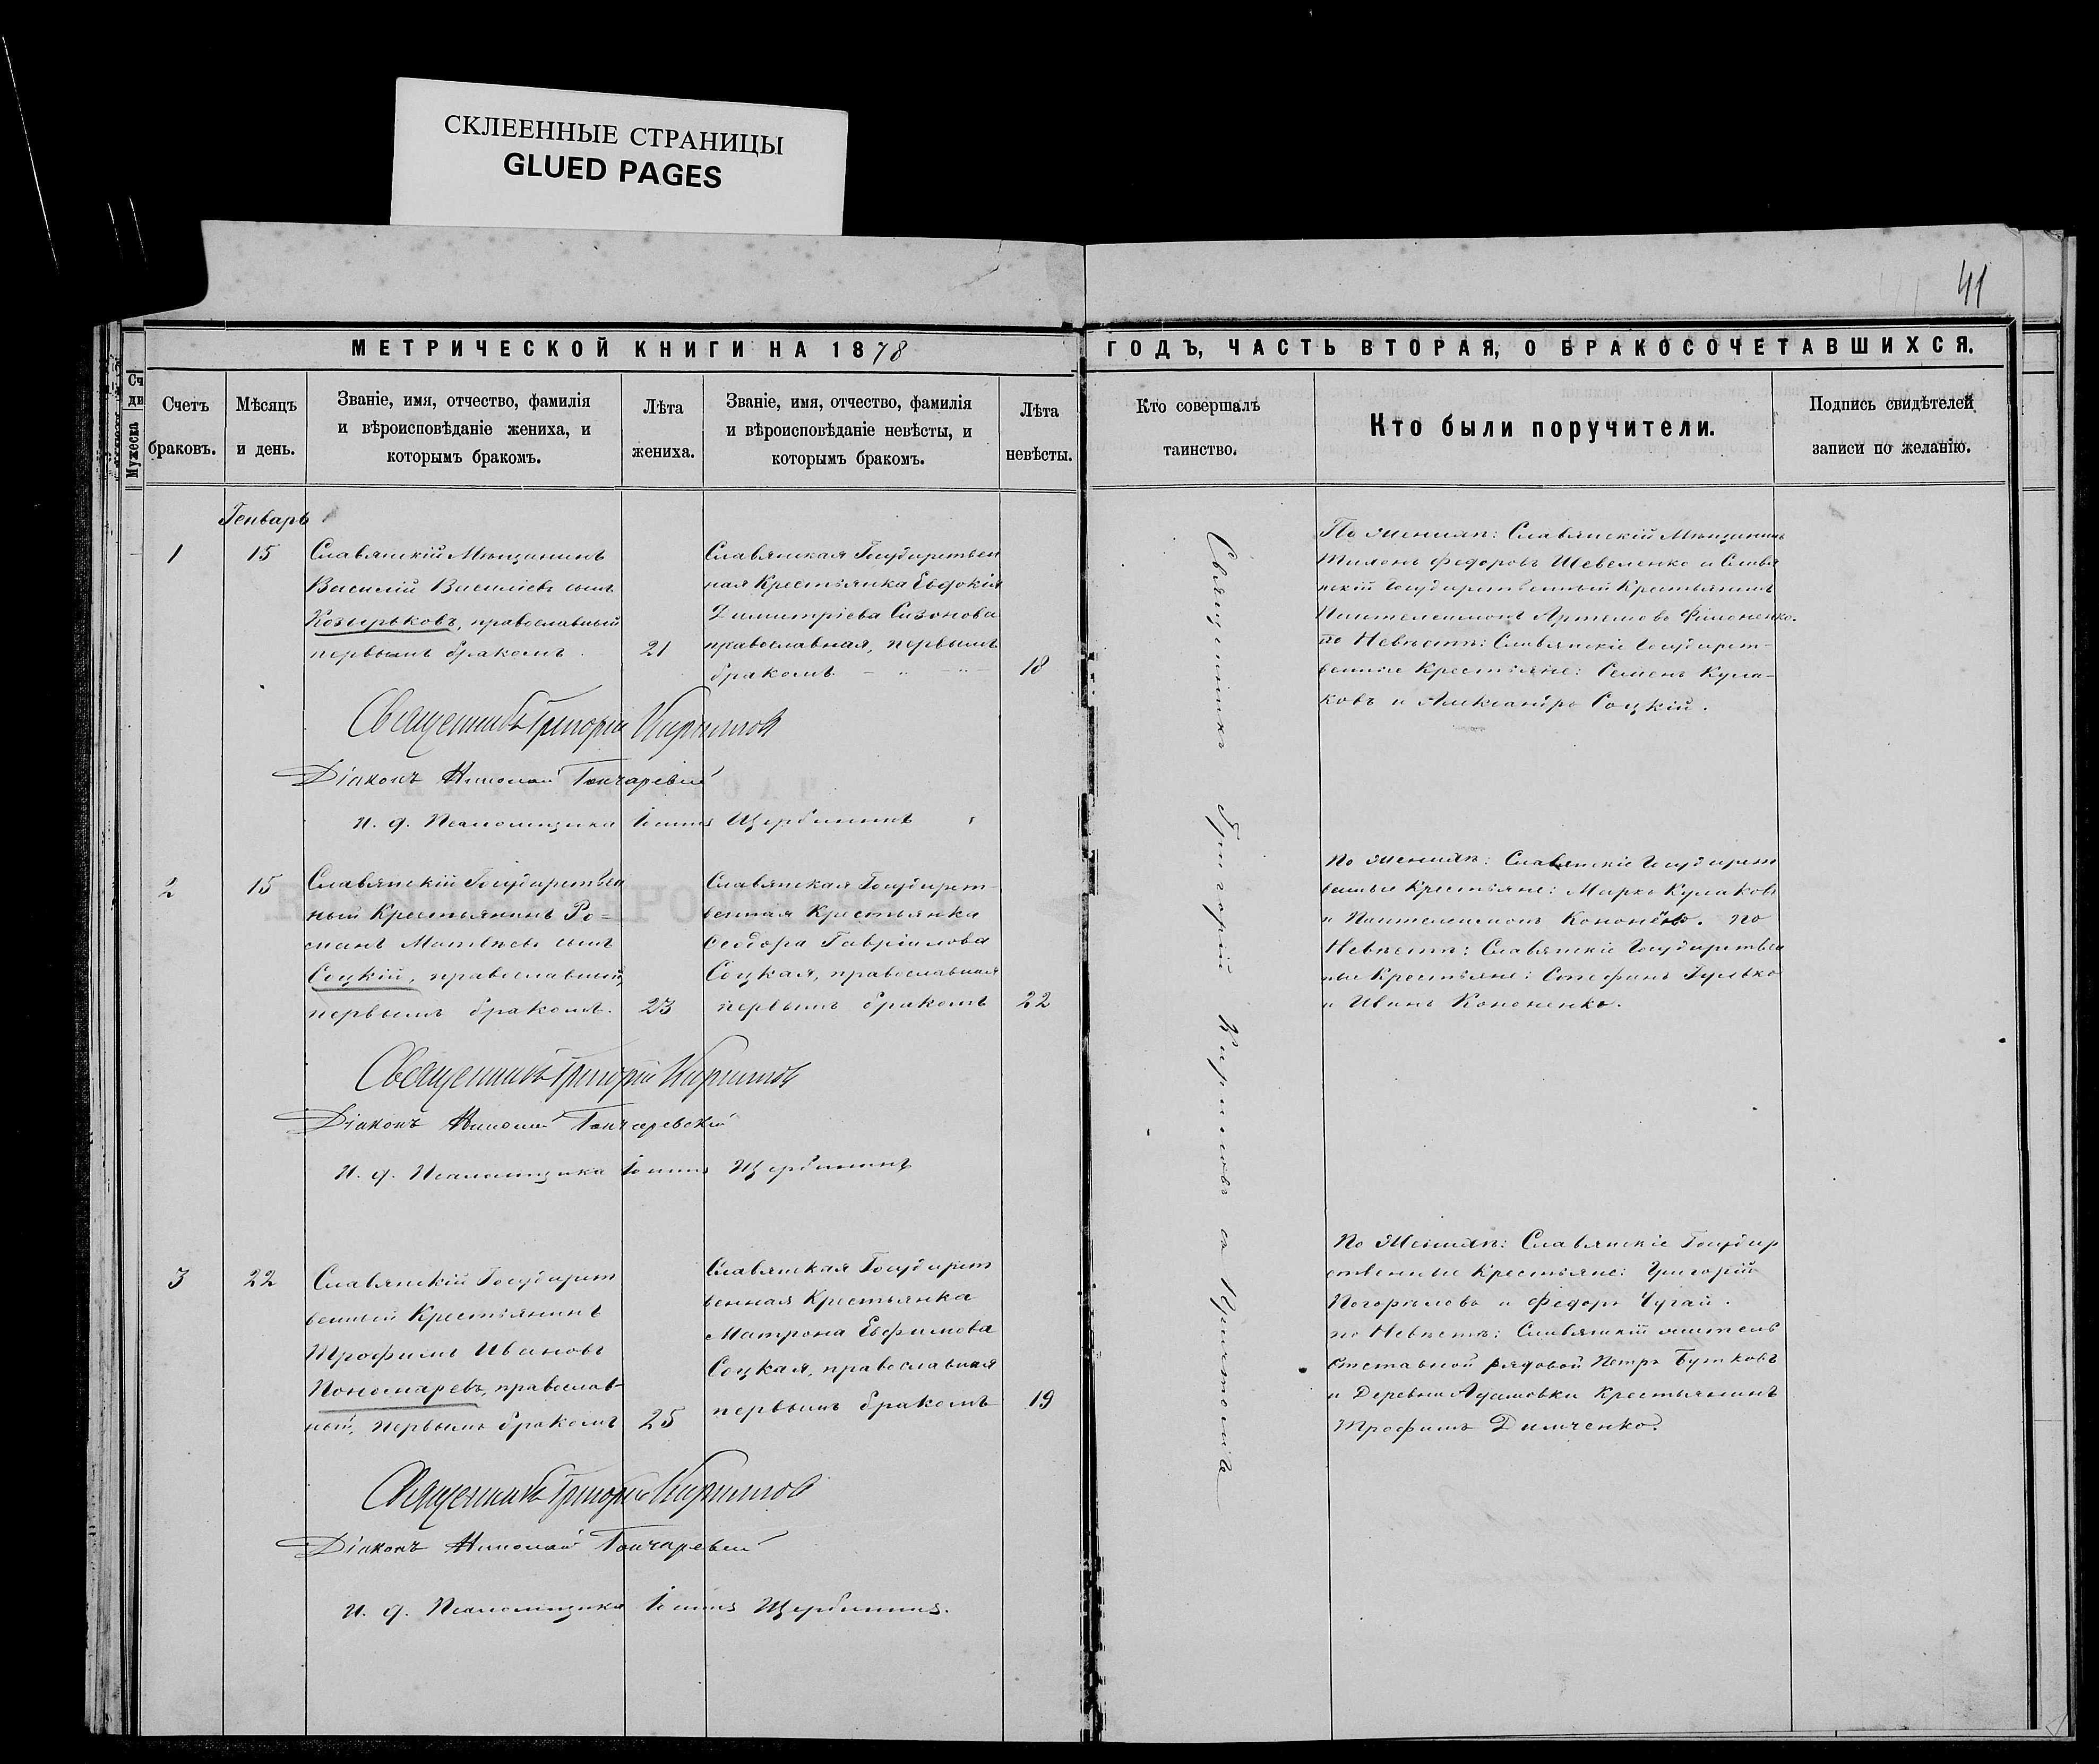 СКЛЕЕННЫЕ СТРАНИЦЫ
GLUED PAGES
41
МЕТРИЧЕСКОЙ КНИГИ НА 1878
ГОДЪ, ЧАСТЬ ВТОРАЯ, О БРАКОСОЧЕТАВШИХСЯ.
Счетъ браковъ.
Мѣсяцъ и день.
Званіе, имя, отчество, фамилія
и вѣроисповѣданіе жениха, и
которымъ бракомъ.
Лѣта жениха.
Званіе, имя, отчество, фамилія
и вѣроисповѣданіе невѣсты, и
которымъ бракомъ.
Лѣта невѣсты.
Кто совершалъ таинство.
Кто были поручители.
Подпись свидѣтелей
записи по желанію.
Мужеска
Генварь
1
15
Славянскій Мѣщанинъ
Василій Василіевъ сынъ
Козырьковъ, православный
первымъ бракомъ.
21
Славянская Государствен
ная Крестьянка Евдокія
Димитріева Сизонова
православная, первымъ
бракомъ
18
Священникъ Григорій Кириловъ
Діаконъ Николай Гончаревскій
И. д. Псаломщика Іоаннъ Щербининъ
По Женихѣ: Славянскій Мѣщанинъ
Тихонъ Федоровъ Шевеленко и Славя
нскій Государственный Крестьянинъ
Пантелеимонъ Артемовъ Филоненко.
по Невѣстѣ: Славянскіе Государст-
венные Крестьяне: Семенъ Кула-
ковъ и Александръ Соцкій.
2
15
Славянскій Государствен
ный Крестьянинъ Ро-
манъ Матвѣевъ сынъ
Соцкій, православный,
первымъ бракомъ.
23
Славянская Государст-
венная Крестьянка
Феодора Гавріилова
Соцкая, православная
первымъ бракомъ
22
Священникъ Григорій Кириловъ
Діаконъ Николай Гончаревскій
И. д. Псаломщика Іоаннъ Щербининъ
По Женихѣ: Славянскіе Государст
венные Крестьяне: Марко Кулаковъ
и Пантелеимонъ по
Невѣстѣ: Славянскіе Государствен
ные Крестьяне: Стефанъ Гулько
и Иванъ Кононенко.
3
22
Славянскій Государст
венный Крестьянинъ
Трофимъ Ивановъ
Пономаревъ, православ-
ный, первымъ бракомъ
25
Славянская Государст
венная Крестьянка
Матрона Евфимова
Соцкая, православная
первымъ бракомъ
19
Священникъ Григорій Кириловъ
Діаконъ Николай Гончаревскій
И. д. Псаломщика Іоаннъ Щербининъ.
По Женихѣ: Славянскіе Государ
ственные Крестьяне: Григорій
Погорѣловъ и Федоръ Чугай.
по Невѣстѣ: Славянскій житель
Отставной рядовой Петръ Бутковъ
и Деревни Адамовки Крестьянинъ
Трофимъ Димченко.
Священникъ Григорій Кириловъ съ Причтомъ